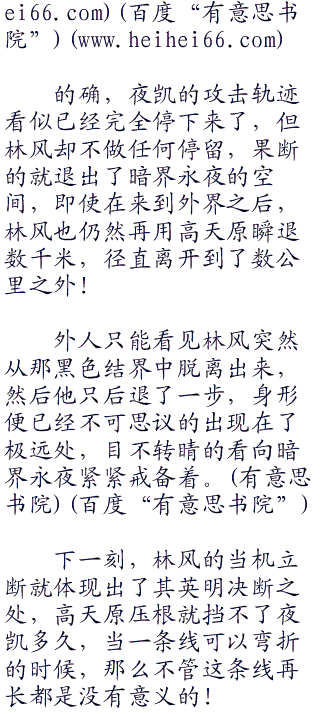 ei66.com)(百度“有意思书
院”)(www.heihei66.com)
的确，夜凯的攻击轨迹
看似已经完全停下来了，但
林风却不做任何停留，果断
的就退出了暗界永夜的空
间，即使在来到外界之后，
林风也仍然再用高天原瞬退
数千米，径直离开到了数公
里之外！
外人只能看见林风突然
从那黑色结界中脱离出来，
然后他只后退了一步，身形
便已经不可思议的出现在了
极远处，目不转睛的看向暗
界永夜紧紧戒备着。(有意思
书院)(百度“有意思书院”)
下一刻，林风的当机立
断就体现出了其英明决断之
处，高天原压根就挡不了夜
凯多久，当一条线可以弯折
的时候，那么不管这条线再
长都是没有意义的！